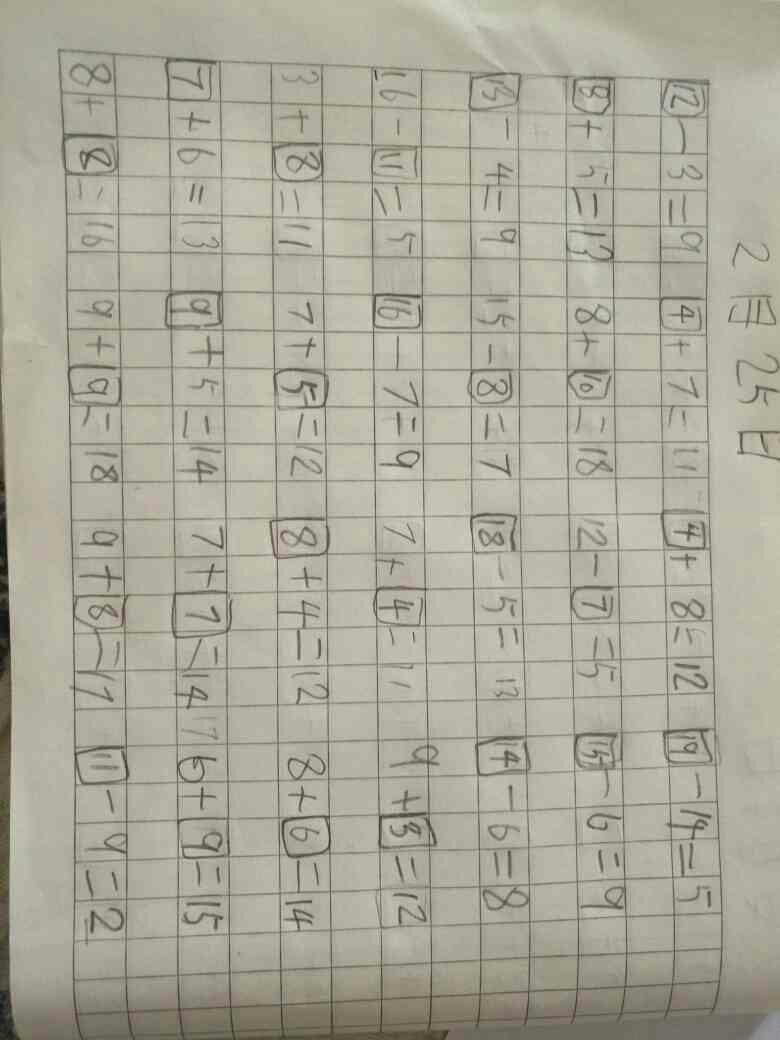 2月25日
12-3=9 4+7=11 4+8=12 19-14=5
8+5=13 8+10=18 12-7=5 15-6=9
13-4=9 15-8=7 18-5=13 14-6=8
16-11=5 16-7=9 7+4=11 9+3=12
3+8=11 7+5=12 8+4=12 8+6=14
7+6=13 9+5=14 7+7=14 6+9=15
8+8=16 9+9=18 9+8=17 11-9=2